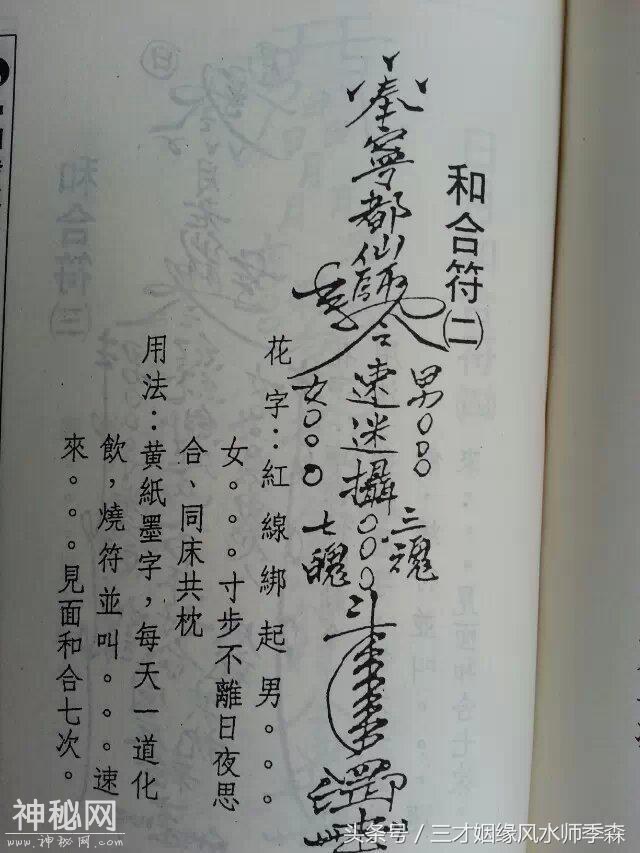 和合符㈡
奉寧都仙
合速迷攝○○○
男○○○
三魂
女○○○
七魄
花字：紅線綁起男。。。
女。。。寸步不離日夜思
合、同床共枕
用法：黃紙墨字，每天一道化
飲，燒符並叫。。。速
來。。。見面和合七次。
和合符㈢
神秘网
www.神秘网.com
头条号／三才姻缘风水师季森